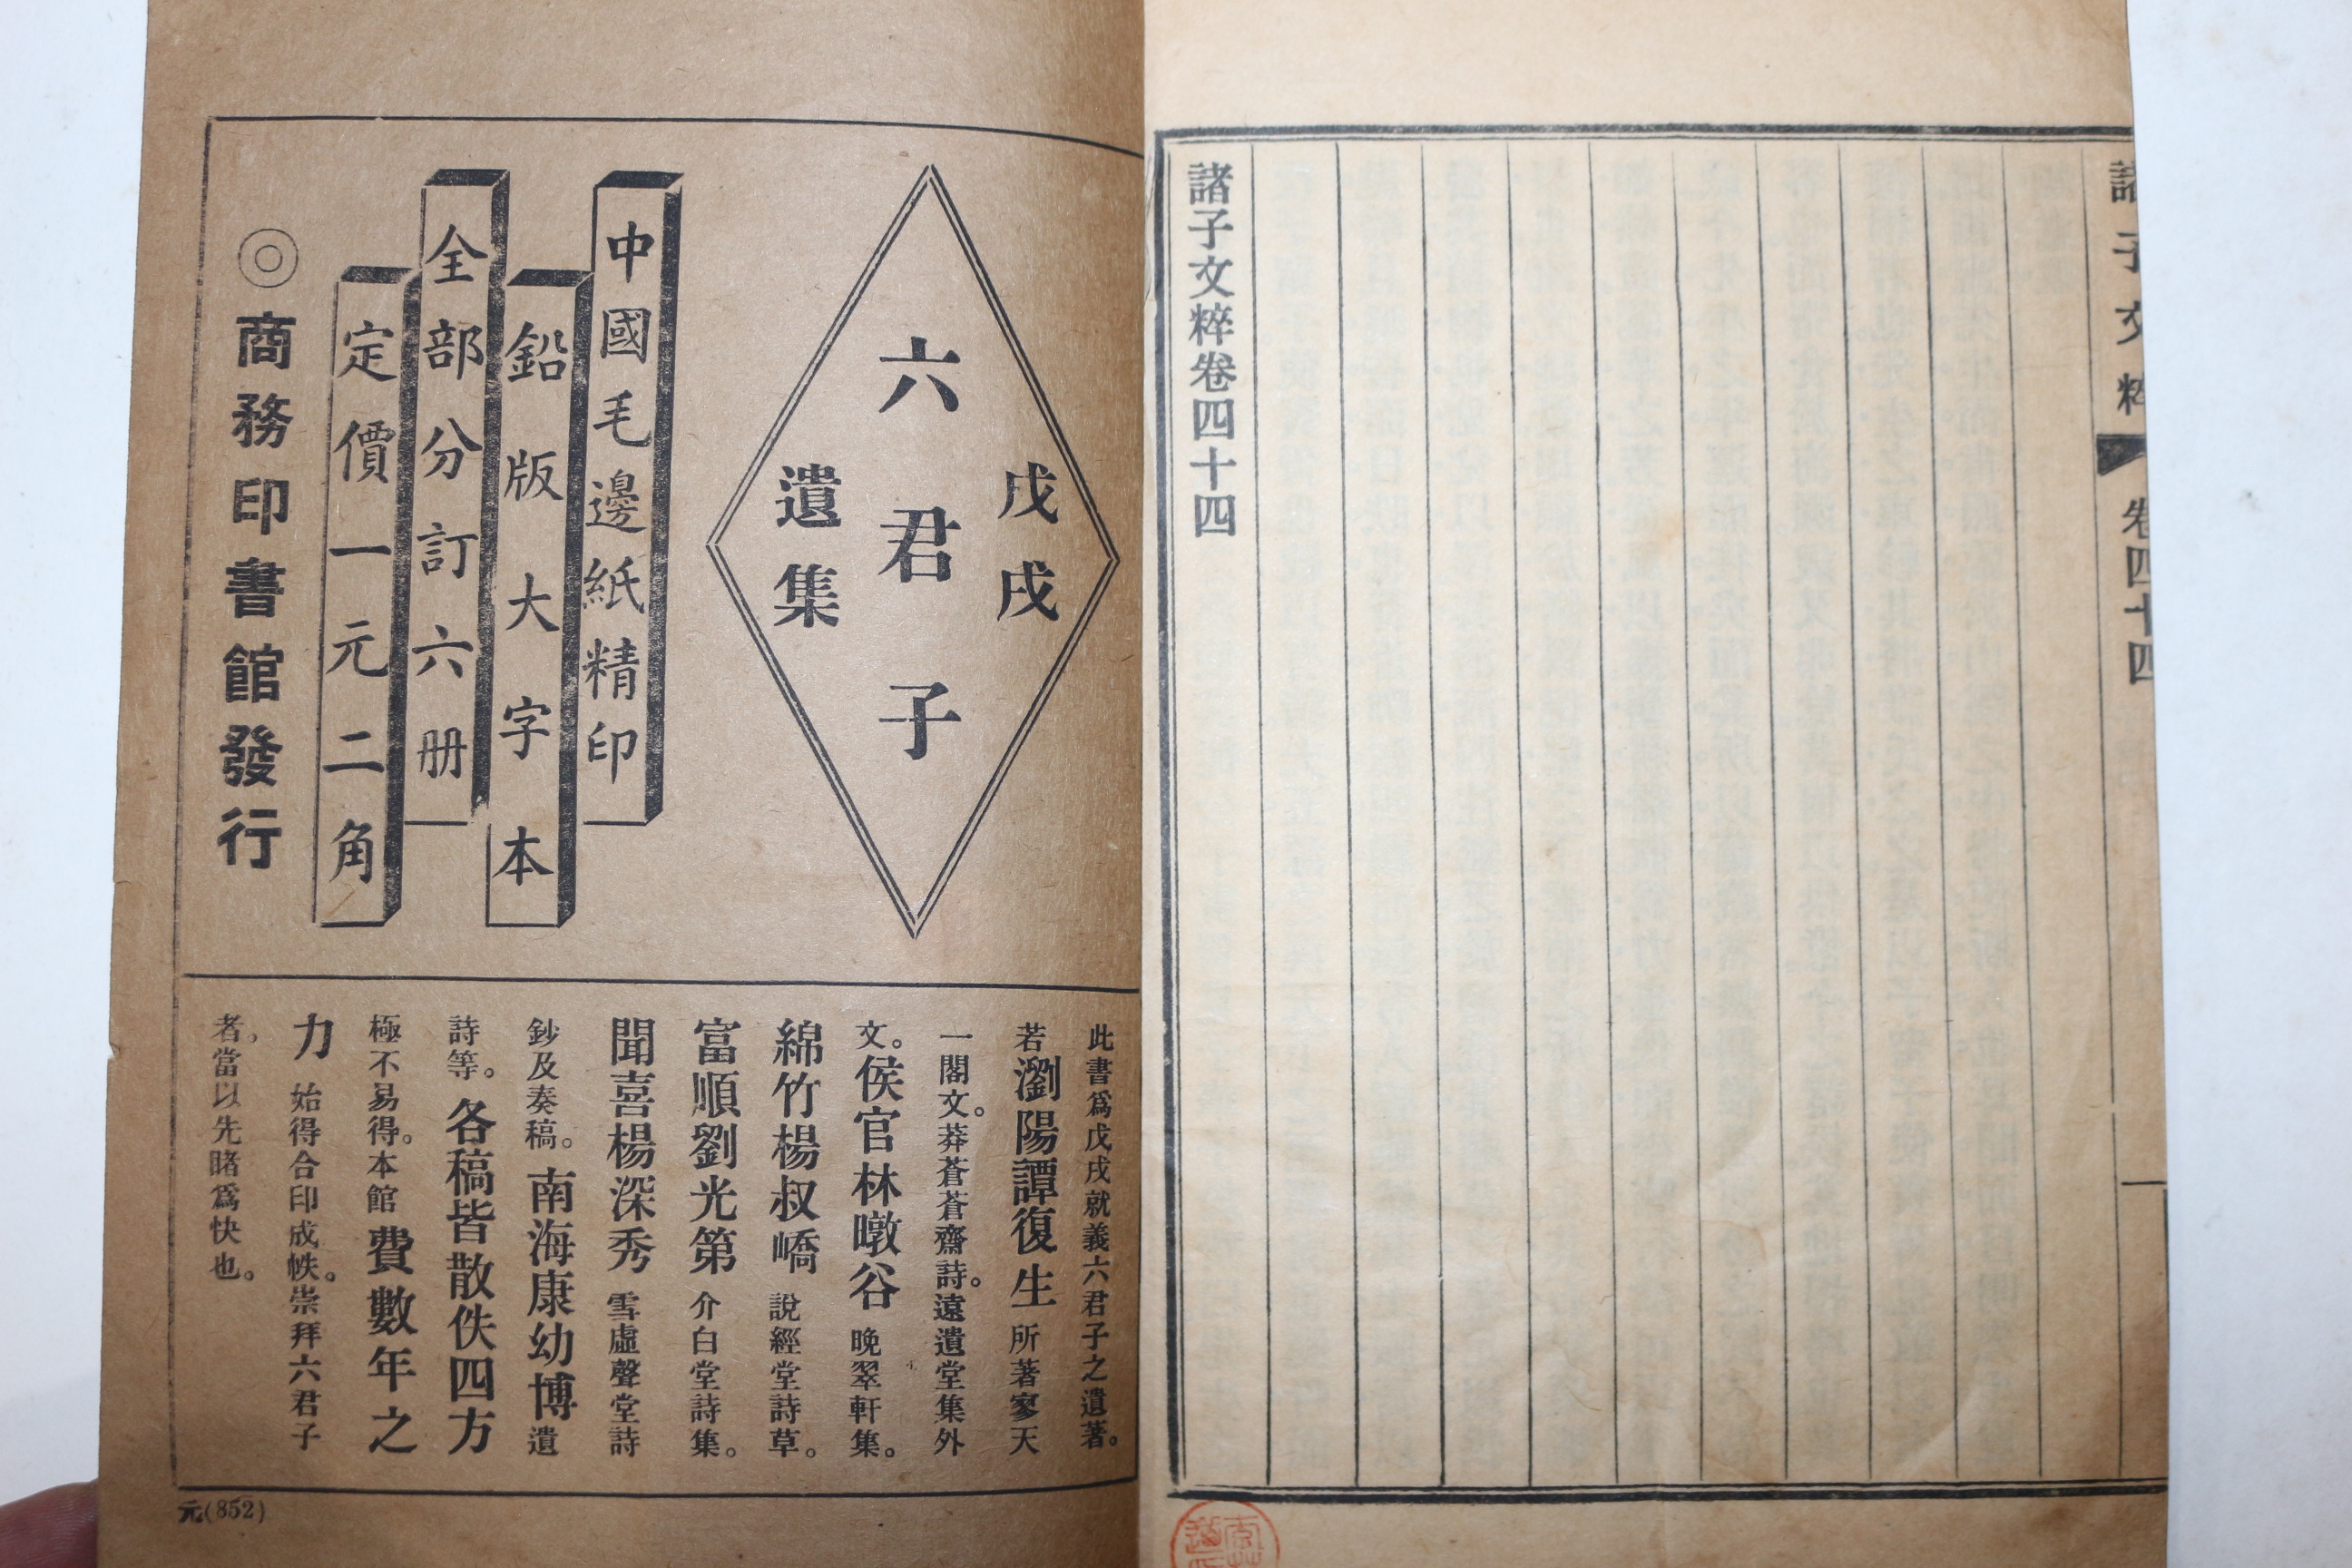 諸子文粹
卷四十四
一
諸子文粹卷四十四
戊戌
六君子
遺集
中國毛邊紙精印
鉛版大字本
全部分訂六册
定價一元二角
◎商務印書館發行
此書爲戊戌就義六君子之遺著。
若瀏陽譚復生所著寥天
一閣文。莽蒼蒼齋詩。遠遺堂集外
文。侯官林暾谷晚翠軒集。
綿竹楊叔嶠說經堂詩草。
富順劉光第介白堂詩集。
聞喜楊深秀雪虛聲堂詩
鈔及奏稿。南海康幼博遺
詩等。各稿皆散佚四方
極不易得。本館費數年之
力始得合印成帙。崇拜六君子
者。當以先睹爲快也。
元(852)